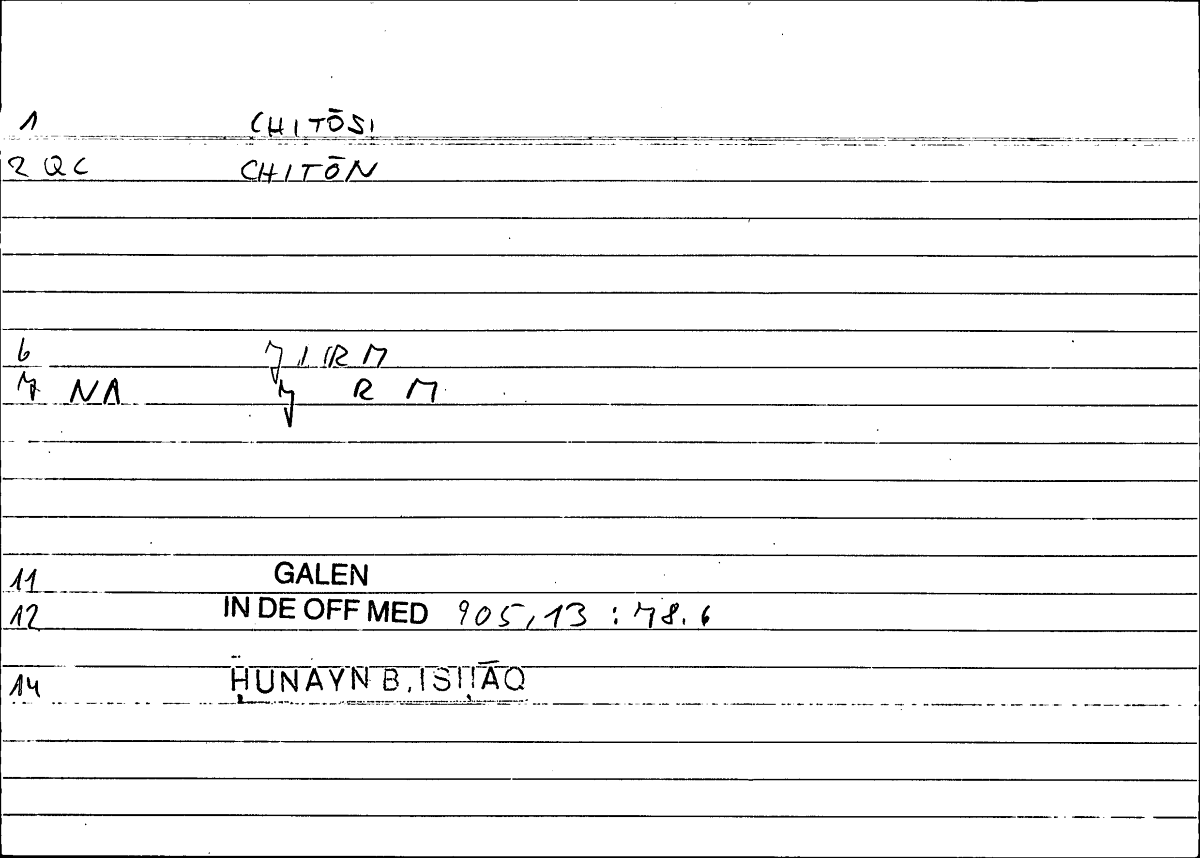 1 CHITŌSI
2 QC CHITŌN
6 J I R M
7 NA J R M
11 GALEN
12 IN DE OFF MED 905,13 : 78.6
14 ḤUNAYN B. ISḤĀQ